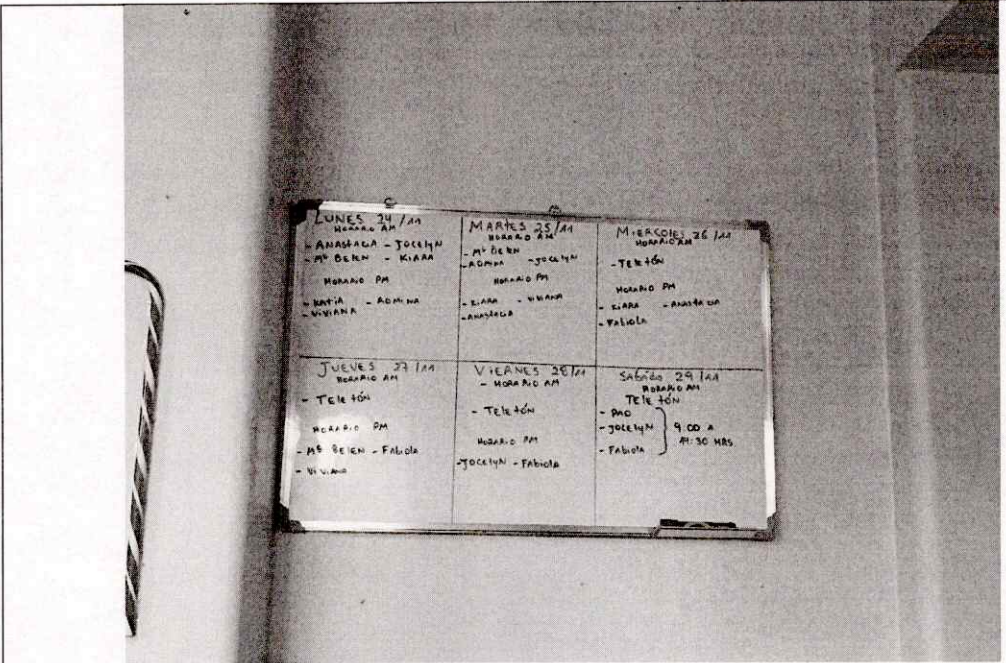 LUNES 24/11
HORARIO AM
- ANASTACIA - JOCELYN
- Mª BELEN - KIARA
HORARIO PM
- KATIA - ROMINA
- VIVIANA
MARTES 25/11
HORARIO AM
- Mª BELEN
- ROMINA - JOCELYN
HORARIO PM
- KIARA - VIVIANA
- ANASTACIA
MIERCOLES 26/11
HORARIO AM
- TELETÓN
HORARIO PM
- KIARA - ANASTACIA
- FABIOLA
JUEVES 27/11
HORARIO AM
- TELETÓN
HORARIO PM
- Mª BELEN - FABIOLA
- VIVIANA
VIERNES 28/11
- HORARIO AM
- TELETÓN
HORARIO PM
- JOCELYN - FABIOLA
SABÁDO 29/11
HORARIO AM
TELETÓN
- PAO
- JOCELYN 9:00 A
:30 HRS
- FABIOLA